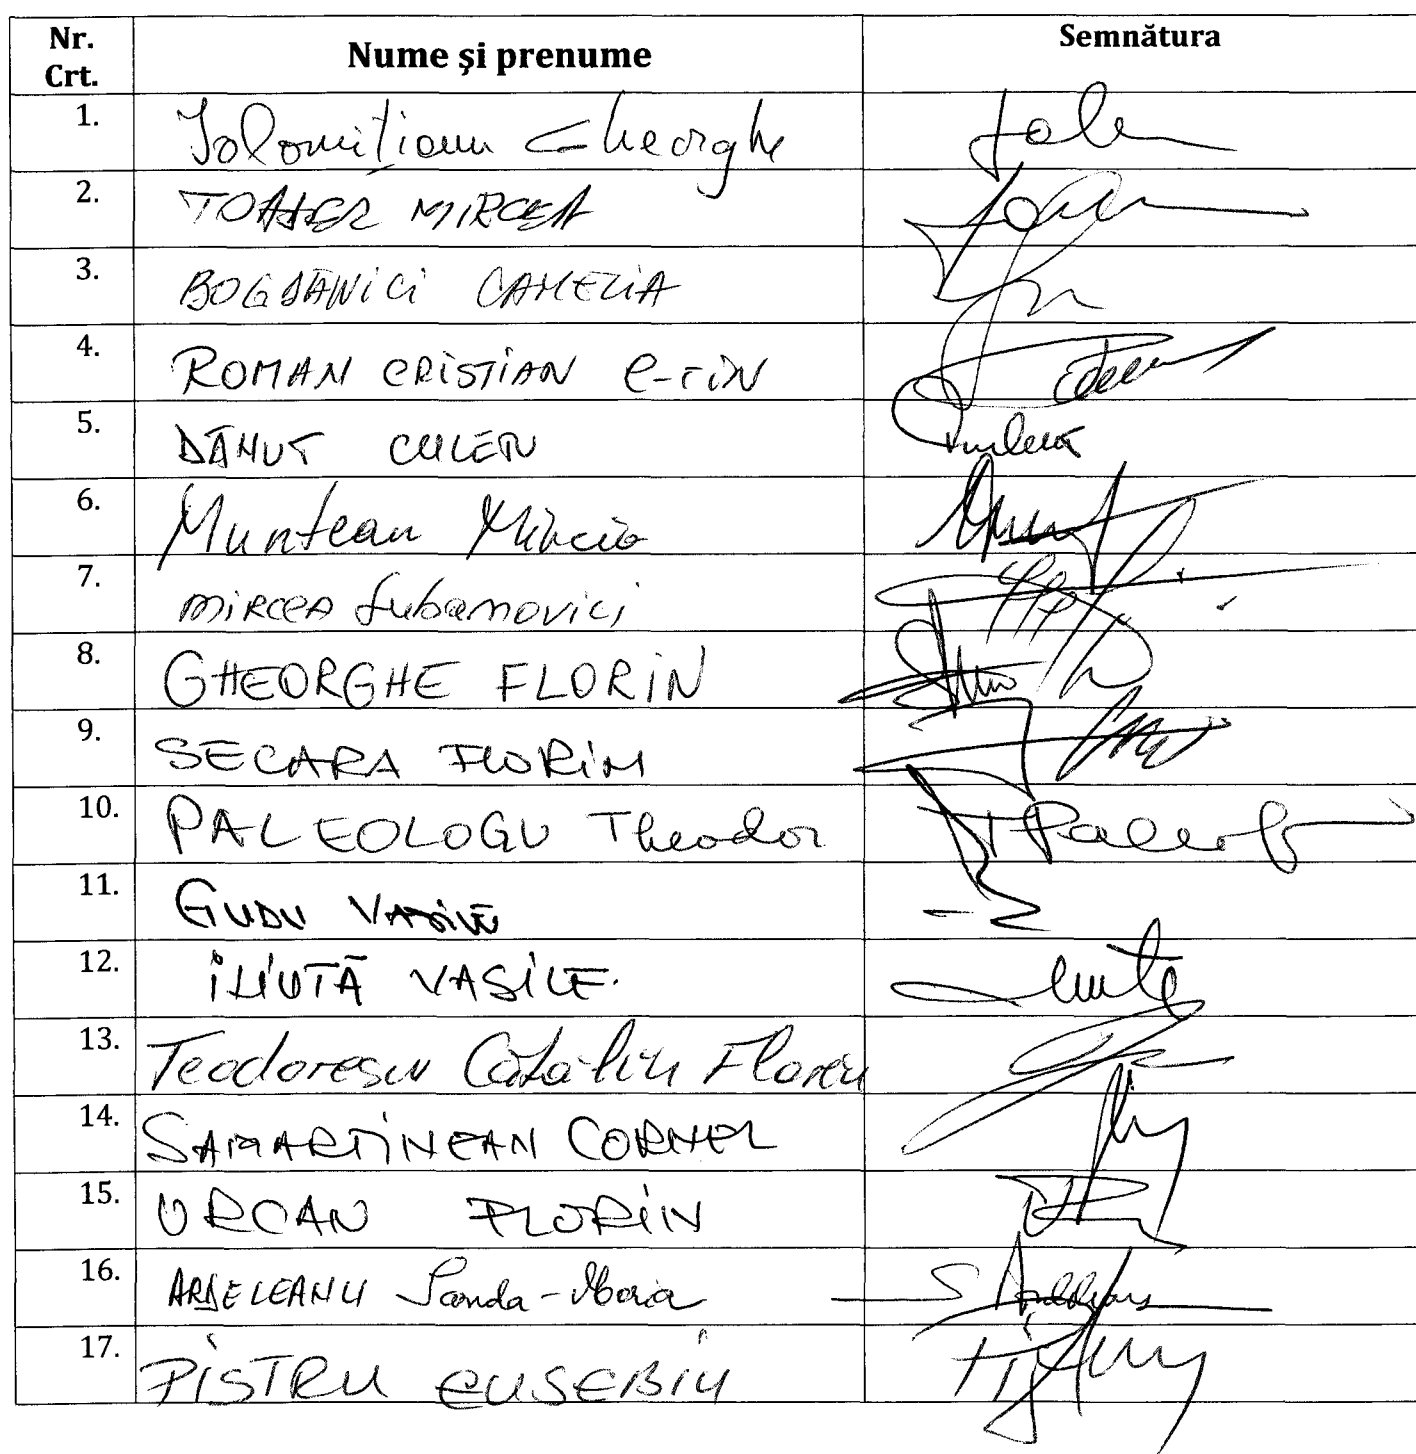 Nr. Crt. Nume şi prenume Semnătura
1. Ialomițianu Gheorghe
2. TOADER MIRCEA
3. BOGDĂNICI CAMELIA
4. ROMAN CRISTIAN C-TIN
5. DĂNUȚ CULEȚU
6. Muntean Mircia
7. MIRCEA Lubanovici
8. GHEORGHE FLORIN
9. SECARA FLORIN
10. PALEOLOGU Theodor
11. GUDU VASILE
12. ILIUȚĂ VASILE.
13. Teodorescu Cătălin Florin
14. SAMARTINEAN CORNEL
15. URCAN FLORIN
16. ARDELEANU Sanda-Maria
17. PISTRU EUSEBIU